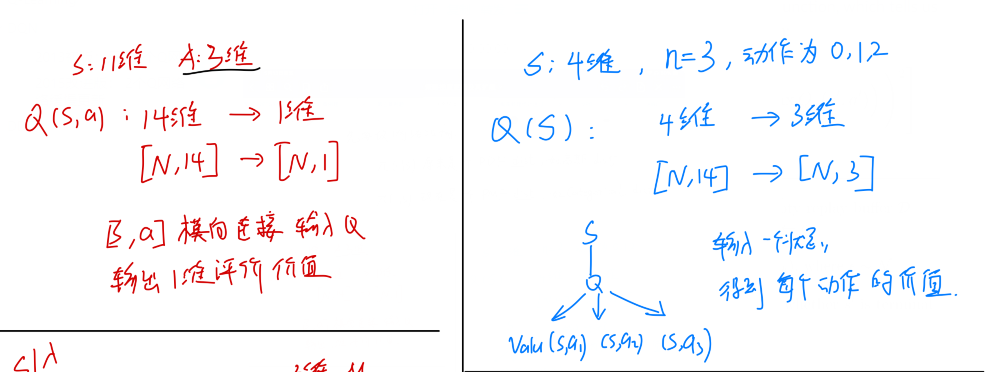 S: 11维 A: 3维
Q(S,a): 14维 → 1维
[N,14] → [N,1]
[S,a] 横向连接 输入Q
输出1维评价价值
S: 4维, n=3, 动作为 0,1,2
Q(S): 4维 → 3维
[N,14] → [N,3]
S
Q
Valu(S,a₁) (S,a₂) (S,a₃)
输入一个状态,
得到每个动作的价值.